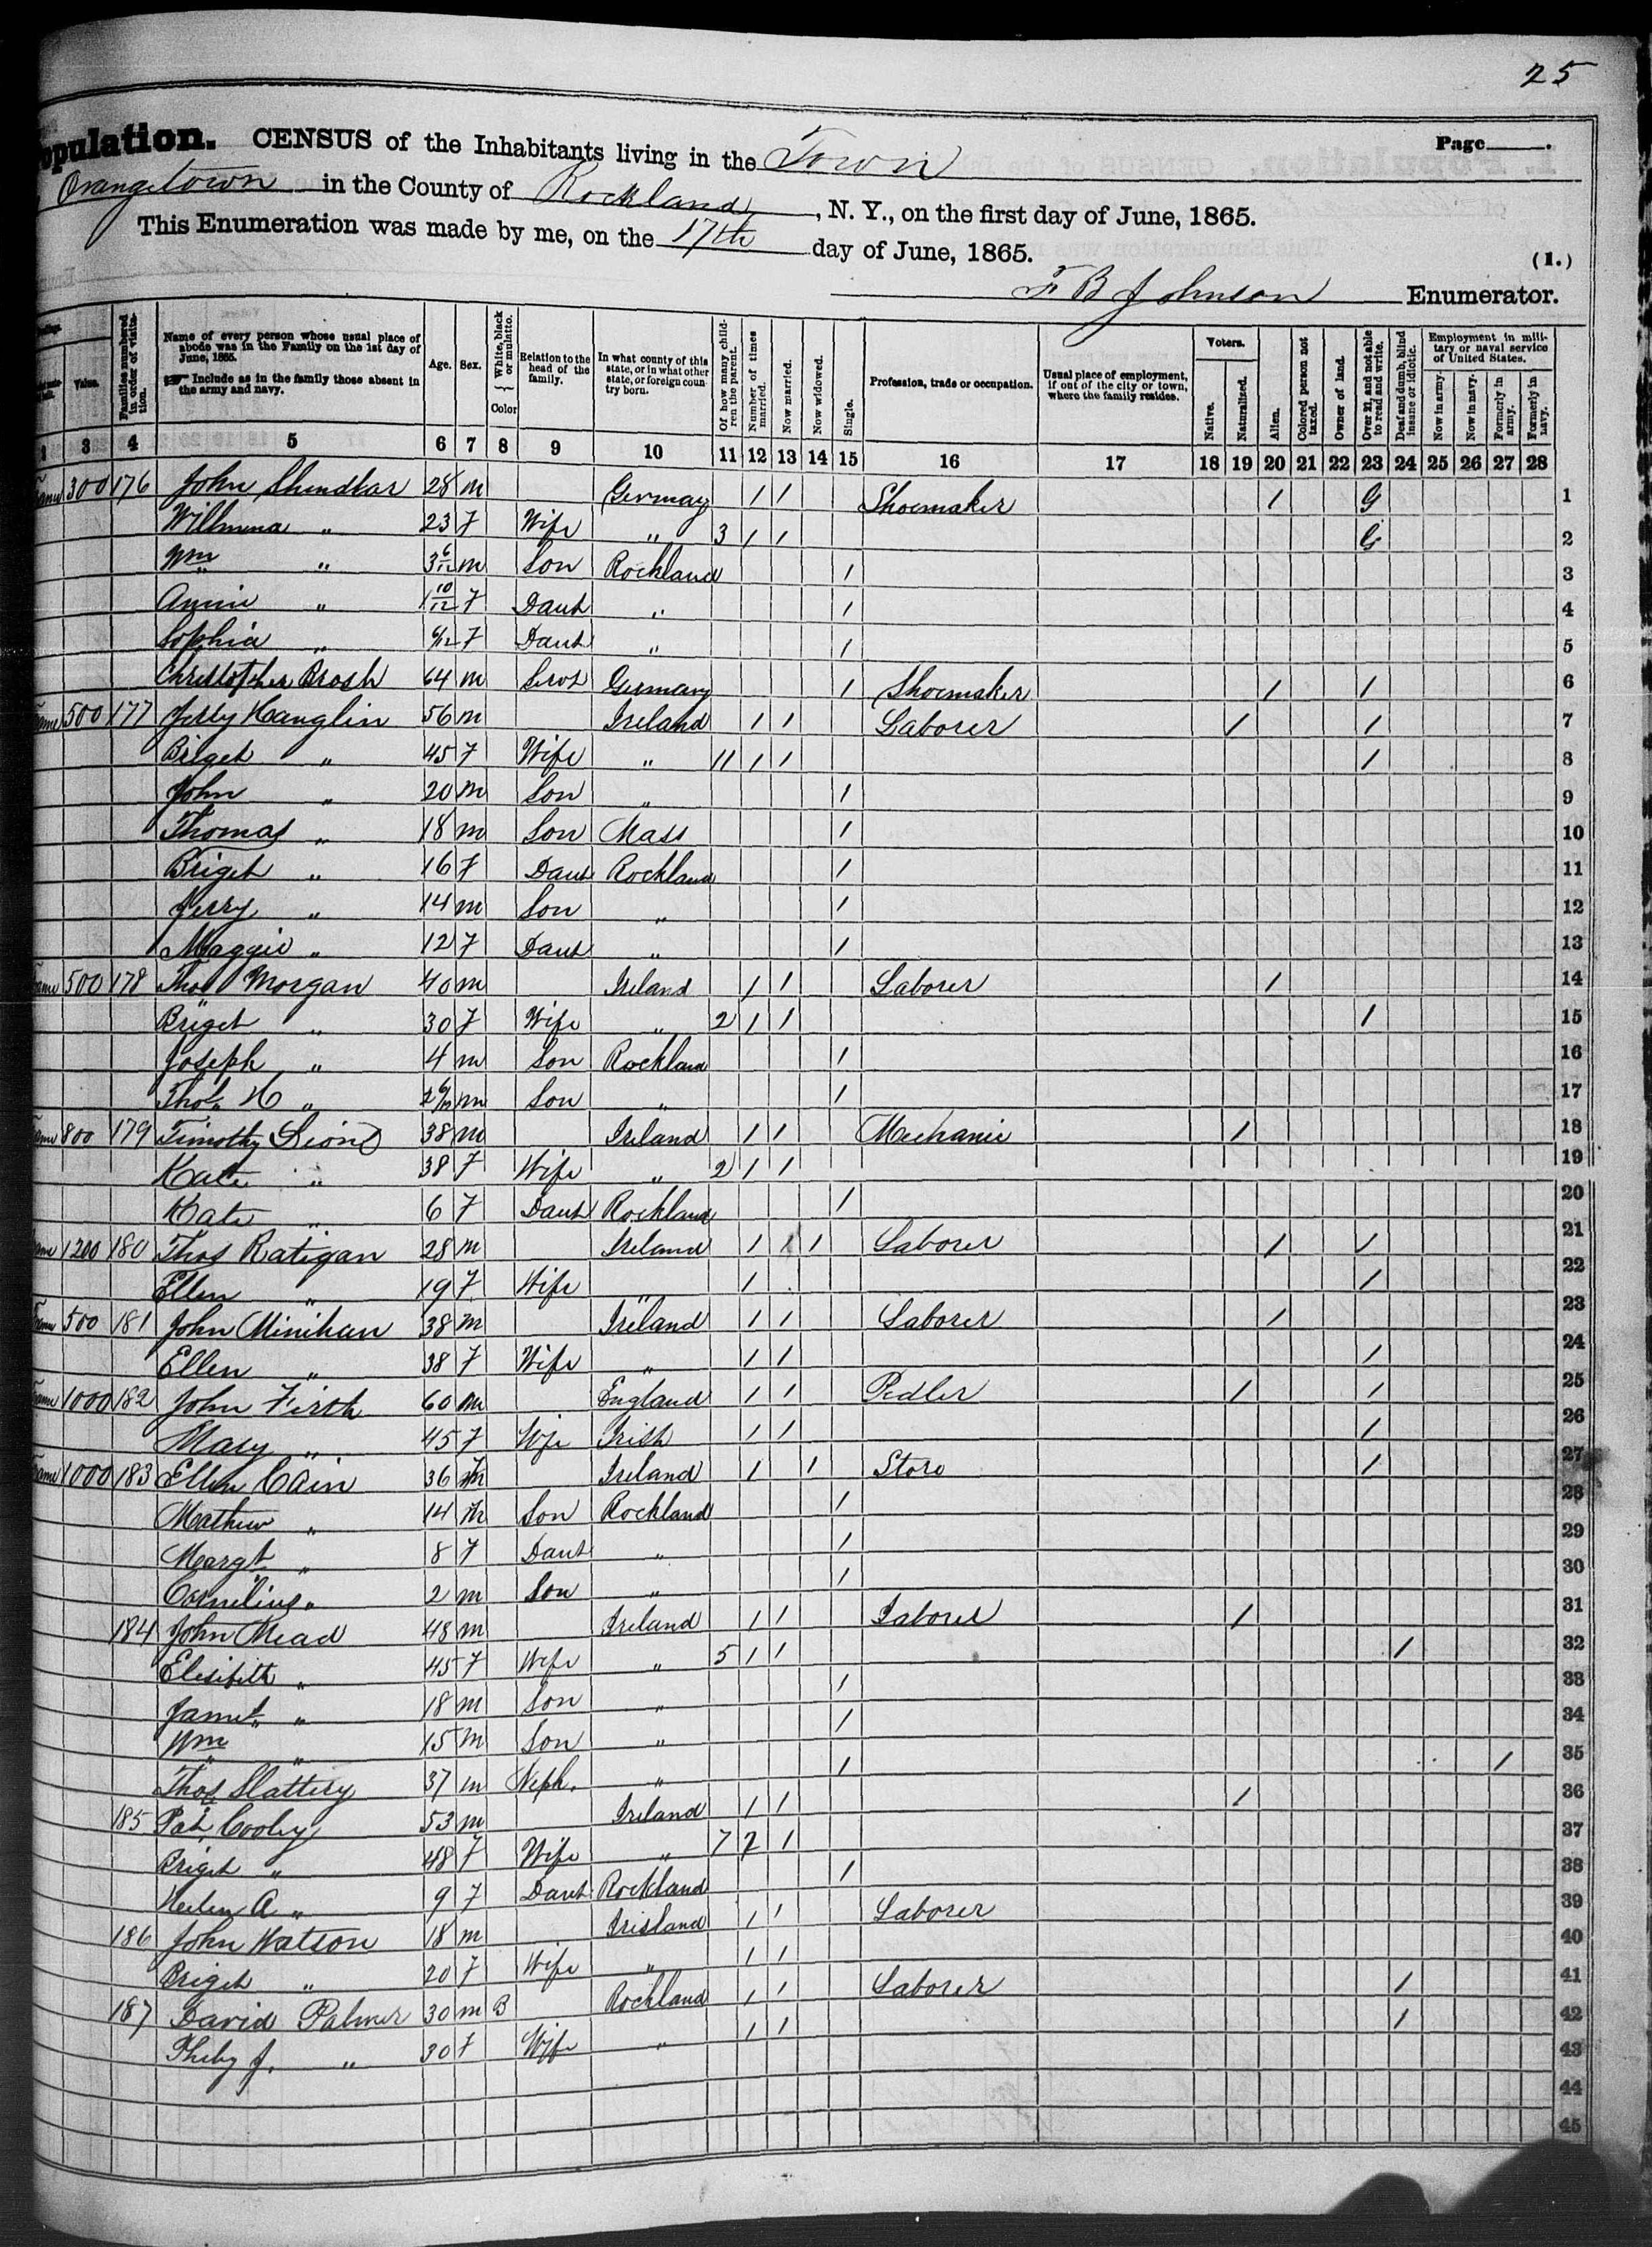 25
Population. CENSUS of the Inhabitants living in the Town Page
Orangetown in the County of Rockland, N. Y., on the first day of June, 1865.
This Enumeration was made by me, on the 17th day of June, 1865. (1.)
F B Johnson Enumerator.
Value. Families numbered in order of visitation. Name of every person whose usual place of abode was in the Family on the 1st day of June, 1865. Include as in the family those absent in the army and navy. Age. Sex. Color { White, black or mulatto. Relation to the head of the family. In what county of this state, or in what other state, or foreign country born. Of how many children the parent. Number of times married. Now married. Now widowed. Single. Profession, trade or occupation. Usual place of employment, if out of the city or town, where the family resides. Voters. Native. Naturalized. Alien. Colored person not taxed. Owner of land. Over 21, and not able to read and write. Deaf and dumb, blind insane or idiotic. Employment in military or naval service of United States. Now in army. Now in navy. Formerly in army. Formerly in navy.
3 4 5 6 7 8 9 10 11 12 13 14 15 16 17 18 19 20 21 22 23 24 25 26 27 28
300 176 John 28 m Germany 1 1 Shoemaker 1 G 1
Willmina " 23 F Wife " 3 1 1 G 2
Wm " 3 6/12 m Son Rockland 1 3
Annie " 1 10/12 F Daut " 1 4
Sophia " 6/12 F Daut " 1 5
Christopher Brosh 64 m Germany 1 Shoemaker 1 1 6
Frame 500 177 Jerry Hanglin 56 m Ireland 1 1 Laborer 1 1 7
Briget " 45 F Wife " 11 1 1 1 8
John " 20 m Son " 1 9
Thomas " 18 m Son Mass 1 10
Briget " 16 F Daut Rockland 1 11
Jerry " 14 m Son " 1 12
Maggie " 12 F Daut " 1 13
Frame 500 178 Thos Morgan 40 m Ireland 1 1 Laborer 1 14
Briget " 30 F Wife " 2 1 1 1 15
Joseph " 4 m Son Rockland 1 16
Thos H " m Son " 1 17
800 179 Timothy 38 m Ireland 1 1 Mechanic 1 18
Kate " 38 F Wife " 2 1 1 19
Kate " 6 F Daut Rockland 1 20
1200 180 Thos Ratigan 28 m Ireland 1 1 1 Laborer 1 1 21
Ellen " 19 F Wife " 1 1 22
Frame 500 181 John Minihan 38 m Ireland 1 1 Laborer 1 23
Ellen " 38 F Wife " 1 1 1 24
Frame 1000 182 John Firth 60 m England 1 1 Pedler 1 1 25
Mary " 45 F Wife Irish 1 1 1 26
Frame 1000 183 Ellen Cain 36 Ireland 1 1 Store 1 27
Mathew " 14 m Son Rockland 1 28
Margt " 8 F Daut " 1 29
Cornelius " 2 m Son " 1 30
184 John Mead 48 m Ireland 1 1 Laborer 1 31
Elesibith " 45 F Wife " 5 1 1 1 32
James " 18 m Son " 1 33
Wm " 15 m Son " 1 34
Thos Slattery 37 m Neph. " 1 1 35
185 Pat Cooley 53 m Ireland 1 1 1 36
Briget " 48 F Wife " 7 2 1 37
Helen A " 9 F Daut Rockland 1 38
186 John Watson 18 m Irisland 1 1 Laborer 39
Briget " 20 F Wife " 1 1 40
187 David Palmer 30 m B Rockland 1 1 Laborer 1 41
Pheby J. " 30 F Wife " 1 1 1 42
43
44
45